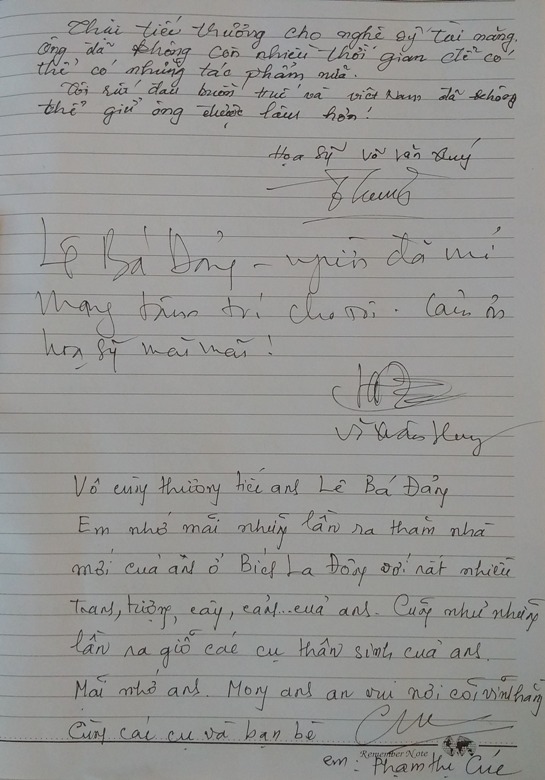 Phải tiếc thương cho nghệ sỹ tài năng.
Ông đã không còn nhiều thời gian để có
thể có những tác phẩm nữa.
Tôi rất đau buồn và Việt Nam đã không
thể giữ ông được lâu hơn!
Họa sỹ Võ Văn
Lê Bá Đảng – người đã mở
mang tâm trí cho tôi. Cảm ơn
họa sỹ mãi mãi!
Võ Xuân Huy
Vô cùng thương tiếc anh Lê Bá Đảng
Em nhớ mãi những lần ra thăm nhà
mới của anh ở Bích La Đông với rất nhiều
tranh, tượng, cây, cảnh...của anh. Cũng như những
lần ra giỗ các cụ thân sinh của anh.
Mãi nhớ anh. Mong anh an vui nơi cõi vĩnh hằng
Cùng các cụ và bạn bè
Remember Note
em: Phạm Thị Cúc